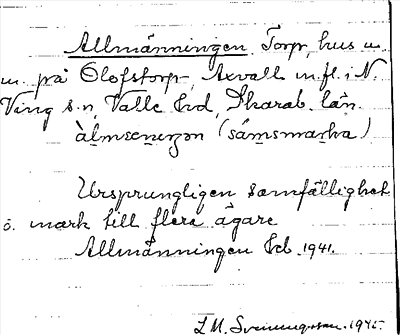 Allmänningen, Torp, hus m.
m. på Olofstorp, Axvall m.fl. i N.
Ving s:n, Valle hd, Skarab. län.
àlmsenenʒən (sámsmarka)
Ursprungligen samfällighet
o. mark till flera ägare
Allmänningen Eeb. 1941.
L M. Svenungsson. 1945.